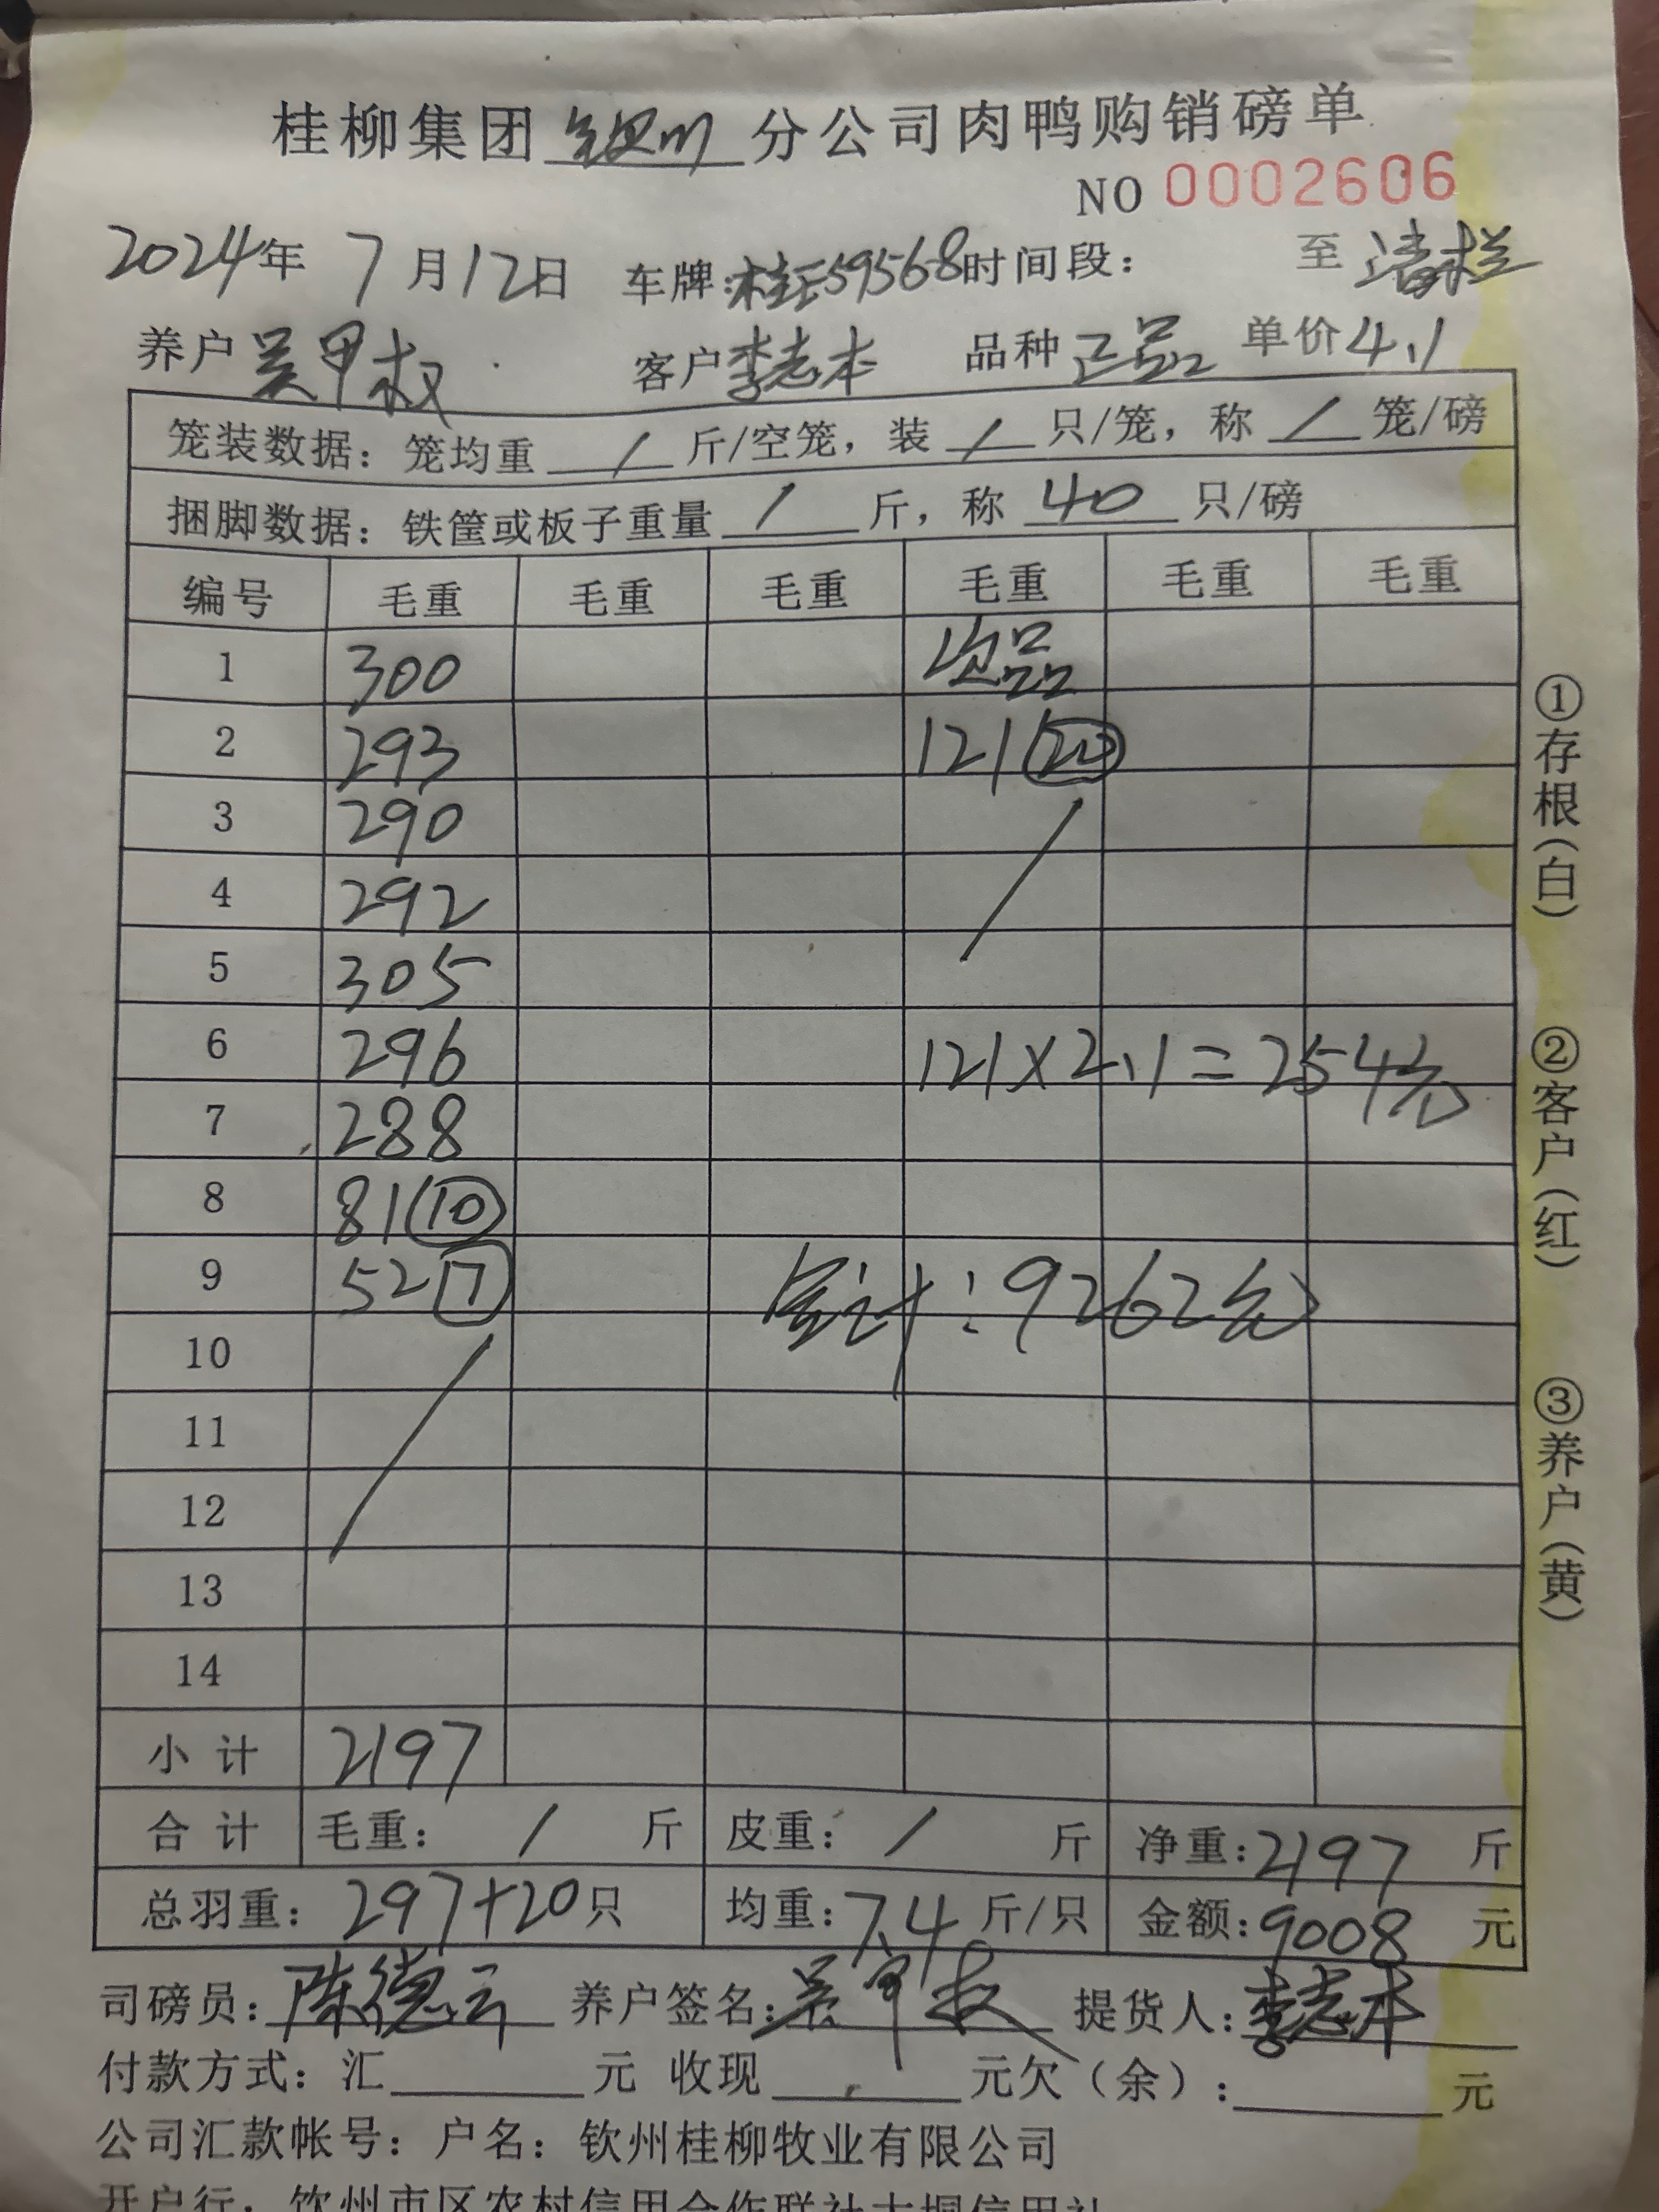 桂柳集团钦州分公司肉鸭购销磅单
NO 0002606
2024年 7月12日 车牌:桂E59568时间段: 至 清栏
养户吴甲权 客户李志本 品种正品 单价4.1
笼装数据:笼均重 / 斤/空笼,装 / 只/笼,称 / 笼/磅
捆脚数据:铁筐或板子重量 / 斤,称 40 只/磅
编号 毛重 毛重 毛重 毛重 毛重 毛重
1 300 次品
2 293 121(20)
3 290
4 292
5 305
6 296 121×2.1=254元
7 288
8 81(10)
9 52 7 合计:9262元
10
11
12
13
14
小计 2197
合计 毛重: / 斤 皮重: / 斤 净重:2197 斤
总羽重: 297+20只 均重:7.4斤/只 金额:9008 元
司磅员:陈德云 养户签名:吴甲权 提货人:李志本
付款方式:汇 元 收现 元欠(余): 元
公司汇款帐号:户名:钦州桂柳牧业有限公司
开户行:钦州市区农村信用合作联社大垌信用社
①存根(白) ②客户(红) ③养户(黄)